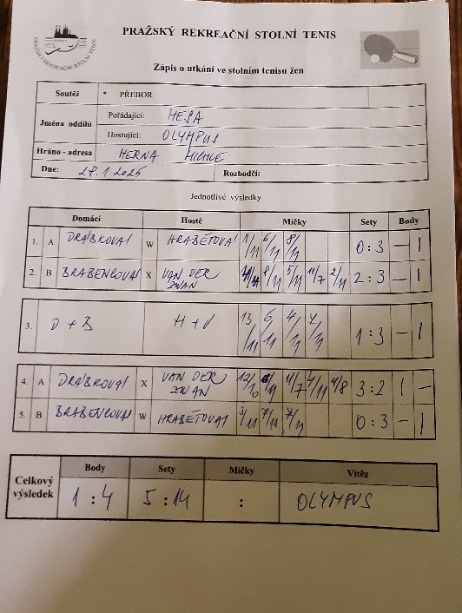 PRAŽSKÝ REKREAČNÍ STOLNÍ TENIS
PRAŽSKÝ REKREAČNÍ STOLNÍ TENIS
Zápis o utkání ve stolním tenisu žen
Soutěž * PŘEBOR
Jména oddílů Pořádající: HESA
Hostující: OLYMPUS
Hráno - adresa HERNA MICHLE
Dne: 27.1.2025 Rozhodčí:
Jednotlivé výsledky
Domácí Hosté Míčky Sety Body
1. A DRÁBKOVÁ W HRABĚTOVÁ 1/11 6/11 8/11 0:3 – 1
2. B BRABENCOVÁ X VAN DER ZWAN 8/11 5/11 11/7 2/11 2:3 – 1
3. D + B H + V 13/11 6/11 4/11 7/11 1:3 – 1
4. A DRÁBKOVÁ X VAN DER ZWAN 12/10 11/7 3:2 1 –
5. B BRABENCOVÁ W HRABĚTOVÁ 3/11 7/11 7/11 0:3 – 1
Celkový výsledek Body Sety Míčky Vítěz
1:4 5:14 : OLYMPUS